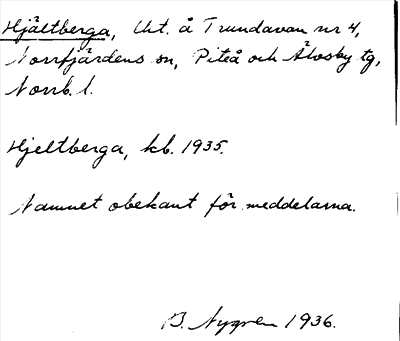 Hjältberga, Utt. å Trundavan nr 4,
Norrfjärdens sn, Piteå och Älvsby tg,
Norrb. l.
Hjeltberga, kb. 1935.
Namnet obekant för meddelarna.
B. Nygren 1936.